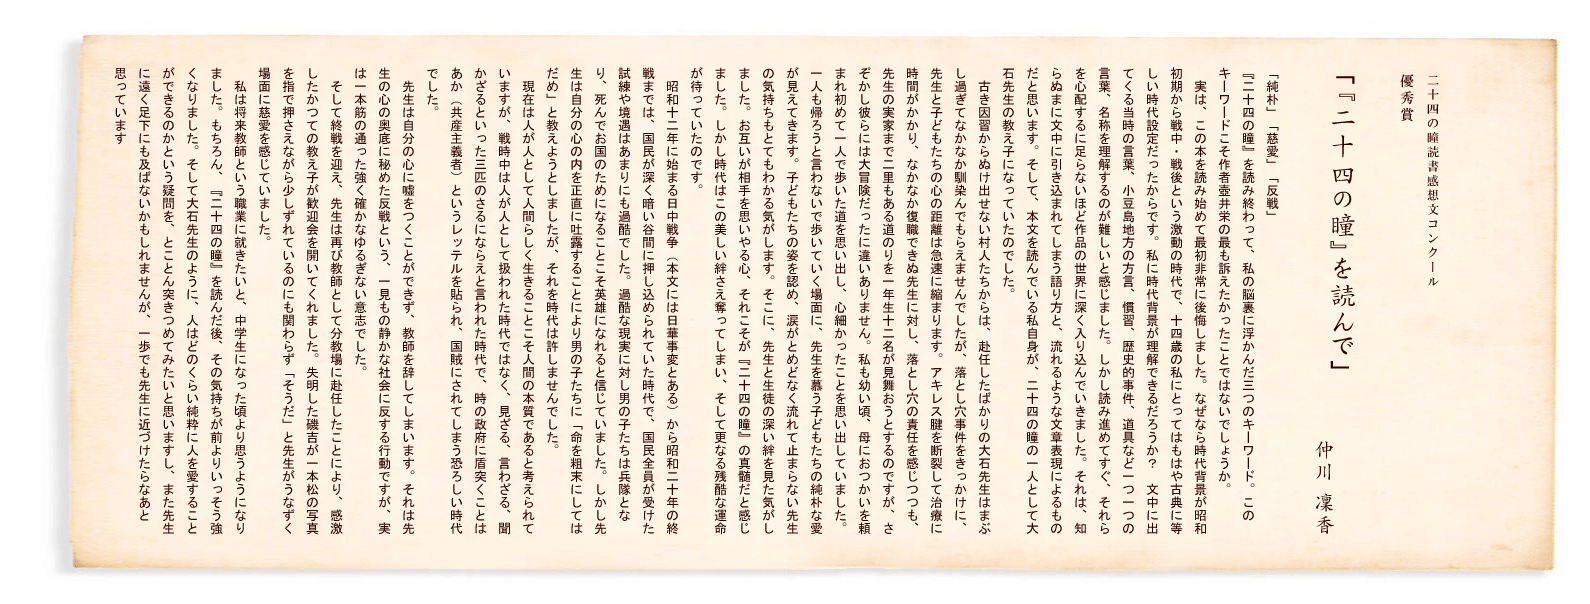 二十四の瞳読書感想文コンクール
優秀賞
「『二十四の瞳』を読んで」
仲川 凜香
「純朴」「慈愛」「反戦」
『二十四の瞳』を読み終わって、私の脳裏に浮かんだ三つのキーワード。この
キーワードこそ作者壺井栄の最も訴えたかったことではないでしょうか。
実は、この本を読み始めて最初非常に後悔しました。なぜなら時代背景が昭和
初期から戦中・戦後という激動の時代で、十四歳の私にとってはもはや古典に等
しい時代設定だったからです。私に時代背景が理解できるだろうか？ 文中に出
てくる当時の言葉、小豆島地方の方言、慣習、歴史的事件、道具など一つ一つの
言葉、名称を理解するのが難しいと感じました。しかし読み進めてすぐ、それら
を心配するに足らないほど作品の世界に深く入り込んでいきました。それは、知
らぬまに文中に引き込まれてしまう語り方と、流れるような文章表現によるもの
だと思います。そして、本文を読んでいる私自身が、二十四の瞳の一人として大
石先生の教え子になっていたのでした。
古き因習からぬけ出せない村人たちからは、赴任したばかりの大石先生はまぶ
し過ぎてなかなか馴染んでもらえませんでしたが、落とし穴事件をきっかけに、
先生と子どもたちの心の距離は急速に縮まります。アキレス腱を断裂して治療に
時間がかかり、なかなか復職できぬ先生に対し、落とし穴の責任を感じつつも、
先生の実家まで二里もある道のりを一年生十二名が見舞おうとするのですが、さ
ぞかし彼らには大冒険だったに違いありません。私も幼い頃、母におつかいを頼
まれ初めて一人で歩いた道を思い出し、心細かったことを思い出していました。
一人も帰ろうと言わないで歩いていく場面に、先生を慕う子どもたちの純朴な愛
が見えてきます。子どもたちの姿を認め、涙がとめどなく流れて止まらない先生
の気持ちもとてもわかる気がします。そこに、先生と生徒の深い絆を見た気がし
ました。お互いが相手を思いやる心、それこそが『二十四の瞳』の真髄だと感じ
ました。しかし時代はこの美しい絆さえ奪ってしまい、そして更なる残酷な運命
が待っていたのです。
昭和十二年に始まる日中戦争（本文には日華事変とある）から昭和二十年の終
戦までは、国民が深く暗い谷間に押し込められていた時代で、国民全員が受けた
試練や境遇はあまりにも過酷でした。過酷な現実に対し男の子たちは兵隊とな
り、死んでお国のためになることこそ英雄になれると信じていました。しかし先
生は自分の心の内を正直に吐露することにより男の子たちに「命を粗末にしては
だめ」と教えようとしましたが、それを時代は許しませんでした。
現在は人が人として人間らしく生きることこそ人間の本質であると考えられて
いますが、戦時中は人が人として扱われた時代ではなく、見ざる、言わざる、聞
かざるといった三匹のさるにならえと言われた時代で、時の政府に盾突くことは
あか（共産主義者）というレッテルを貼られ、国賊にされてしまう恐ろしい時代
でした。
先生は自分の心に嘘をつくことができず、教師を辞してしまいます。それは先
生の心の奥底に秘めた反戦という、一見もの静かな社会に反する行動ですが、実
は一本筋の通った強く確かなゆるぎない意志でした。
そして終戦を迎え、先生は再び教師として分教場に赴任したことにより、感激
したかつての教え子が歓迎会を開いてくれました。失明した磯吉が一本松の写真
を指で押さえながら少しずれているのにも関わらず「そうだ」と先生がうなずく
場面に慈愛を感じていました。
私は将来教師という職業に就きたいと、中学生になった頃より思うようになり
ました。もちろん、『二十四の瞳』を読んだ後、その気持ちが前よりいっそう強
くなりました。そして大石先生のように、人はどのくらい純粋に人を愛すること
ができるのかという疑問を、とことん突きつめてみたいと思いますし、また先生
に遠く足下にも及ばないかもしれませんが、一歩でも先生に近づけたらなあと
思っています